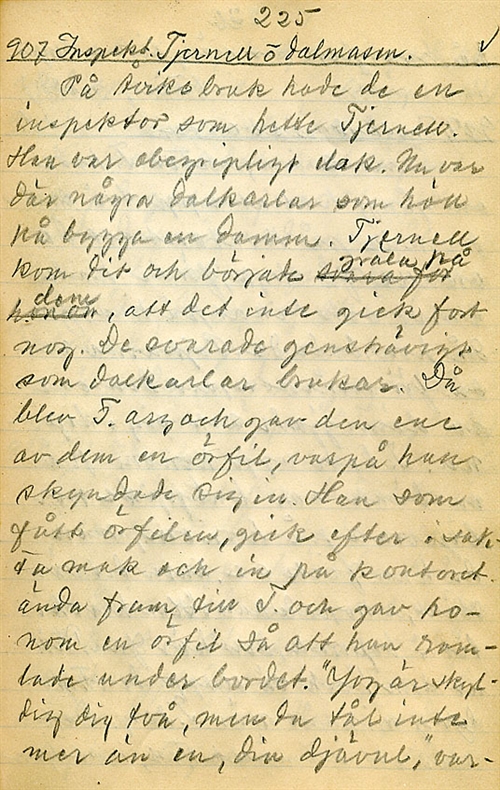 225
907 Inspekt. Tjernell o dalmasen. √
På Kirks bruk hade de en
inspektor som hette Tjernell.
Han var obeskripligt elak. Nu var
där några dalkarlar som höll
på bygga en damm. Tjernell
kom dit och började gräla på
dem, att det inte gick fort
nog. De svarade gensträvigt
som dalkarlar brukar. Då
blev T. arg och gav den ene
av dem en örfil, varpå han
skyndade sig in. Han som
fått örfilen, gick efter i sak-
ta mak och in på kontoret
ända fram till T. och gav ho-
nom en örfil så att han ram-
lade under bordet. "Jog är skyl-
dig dig två, men du tål inte
mer än en, din djävul," var-